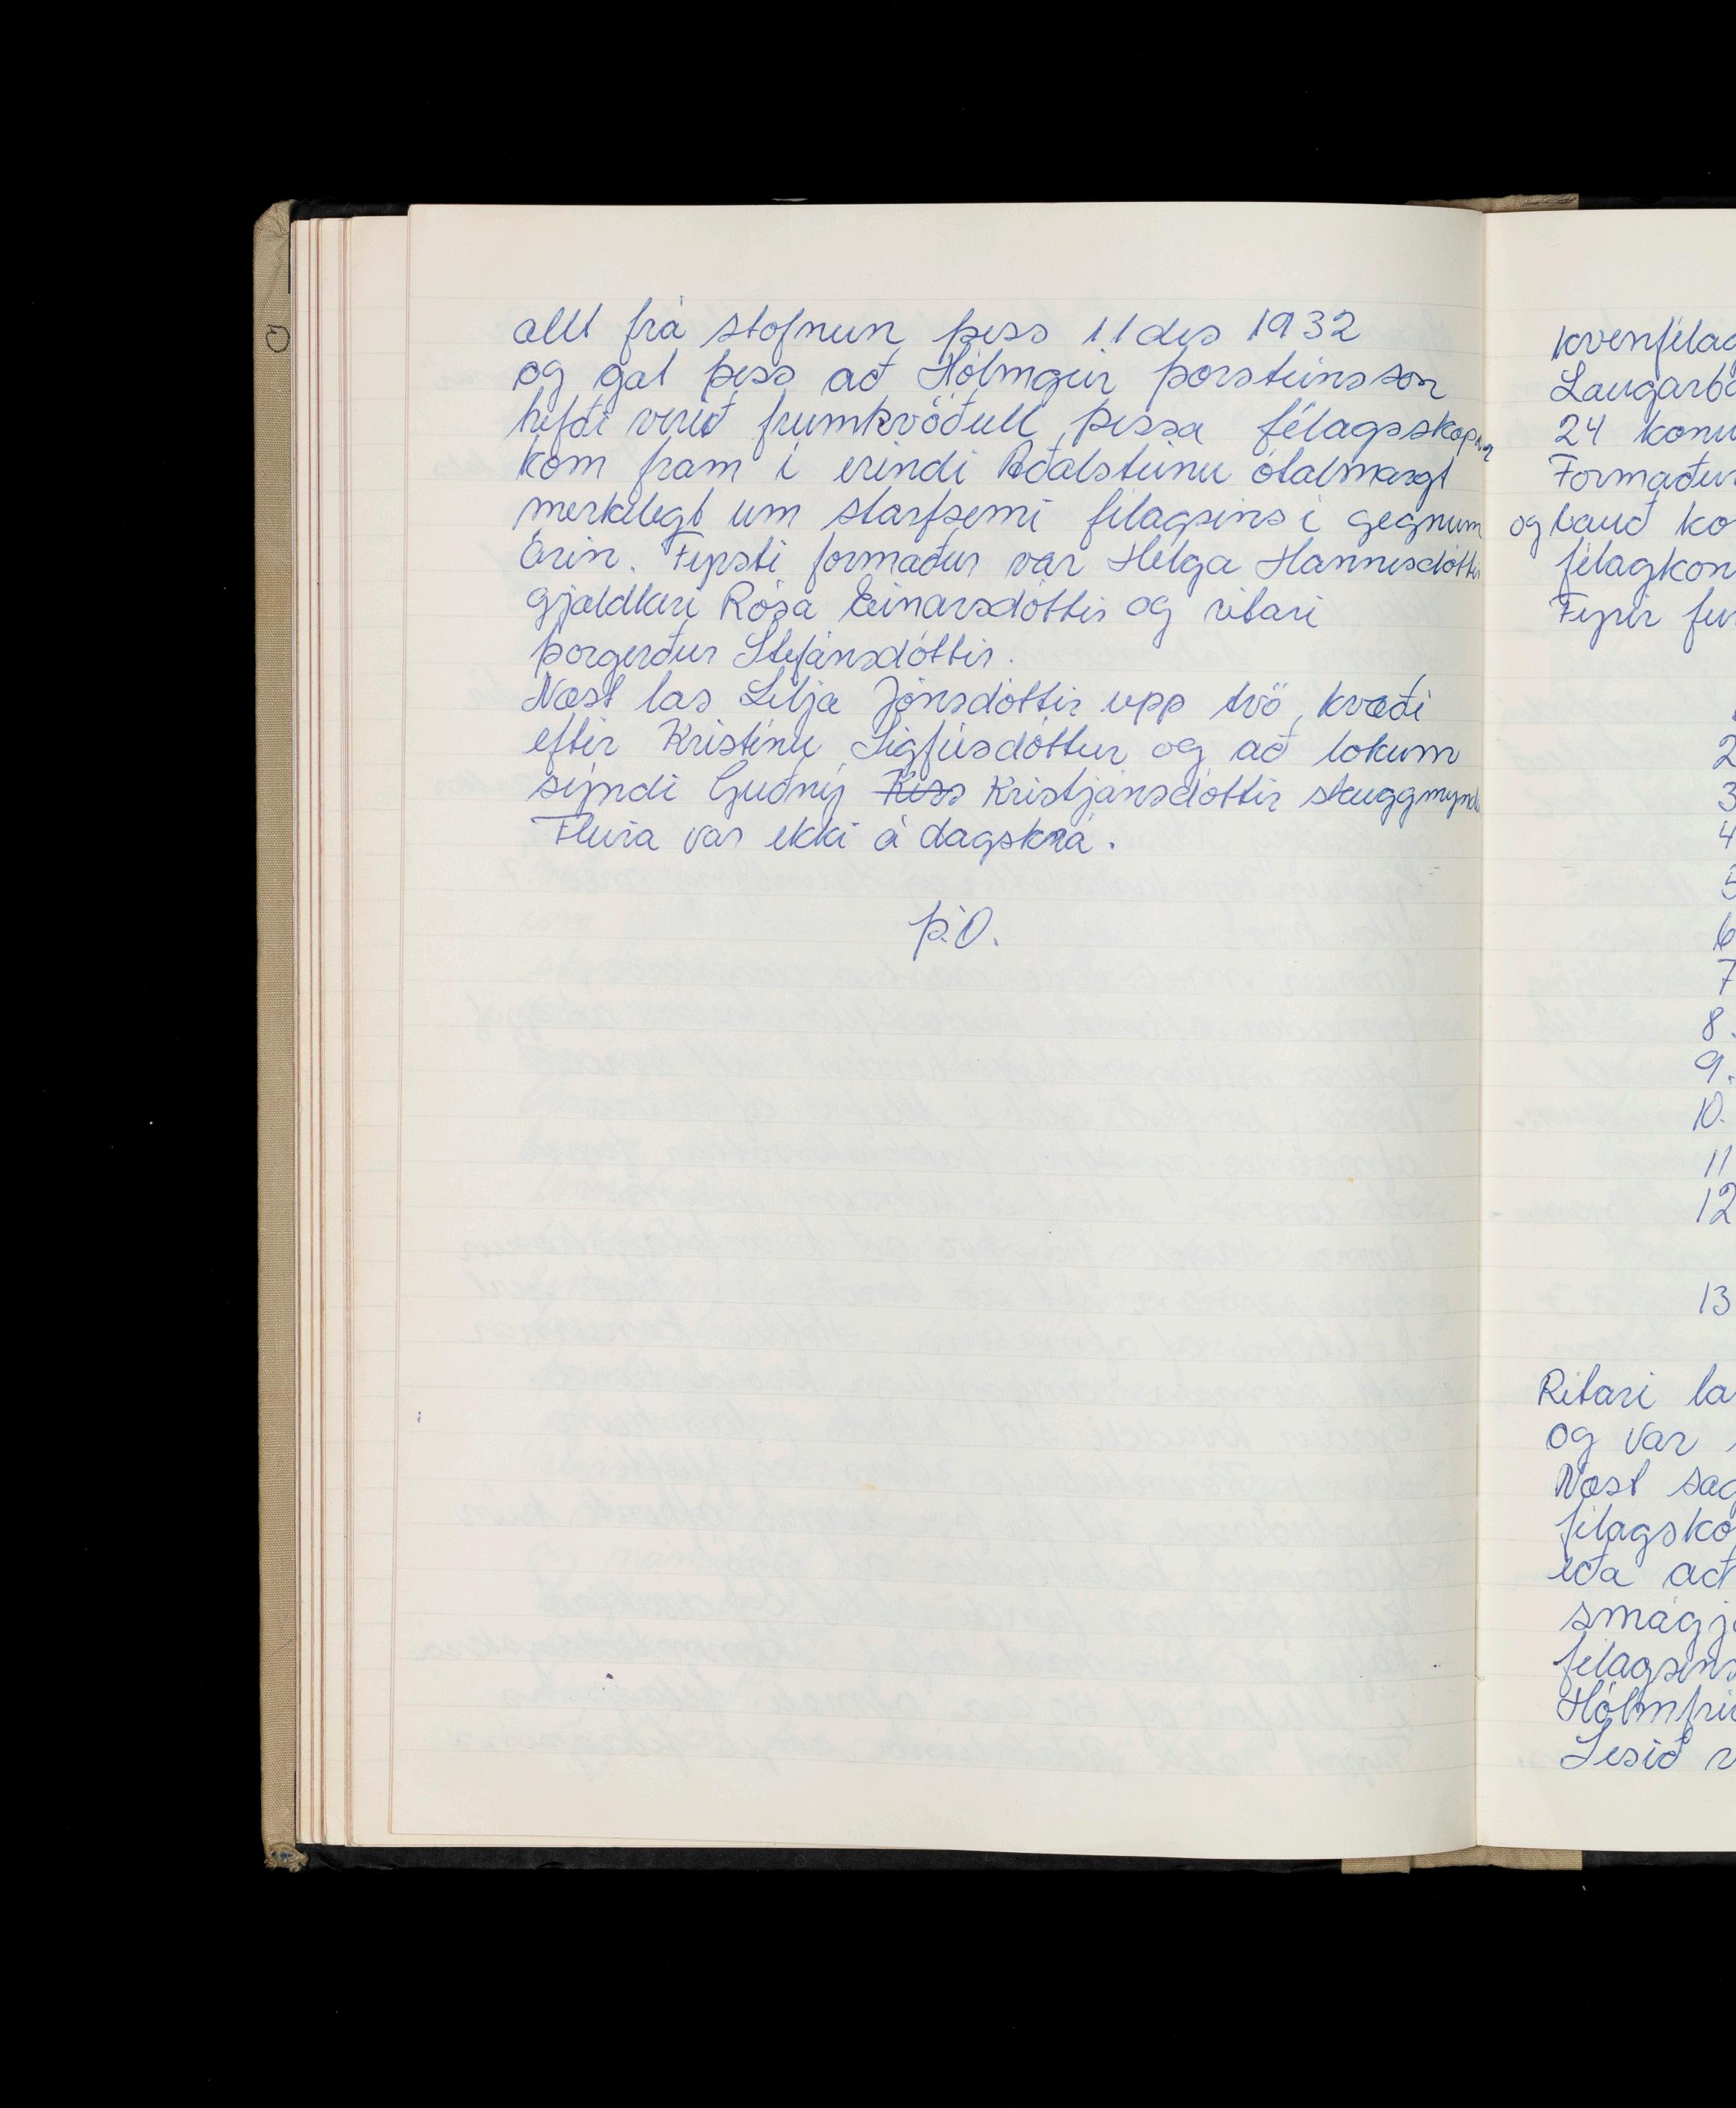 allt frá stofnun þess 11 des 1932
og gat þess að Hólmgeir Þorsteinsson
hefði verið frumkvöðull þessa félagsskapar
kom fram í erindi Aðalsteinu ótalmargt
merkilegt um starfsemi félagsins í gegnum
árin. Fyrsti formaður var Helga Hannesdóttir
gjaldkeri Rósa Einarsdóttir og ritari
Þorgerður Stefánsdóttir.
Næst las Lilja Jónsdóttir upp tvö kvæði
eftir Kristínu Sigfúsdóttur og að lokum
sýndi Guðný Kriss Kristjánsdóttir skuggmyndi
Fleira var ekki á dagskrá.
Þ.O.
kvenfélag
Laugarbo
24 konu
Formaður
og bauð ko
félagkon
Fyrir fun
2
3
4
5
6
7
8.
9.
10.
11
12
13
Ritari la
og var
Næst sag
félagsko
eða að
smágj
félagsins
Hólmfrí
Lesið